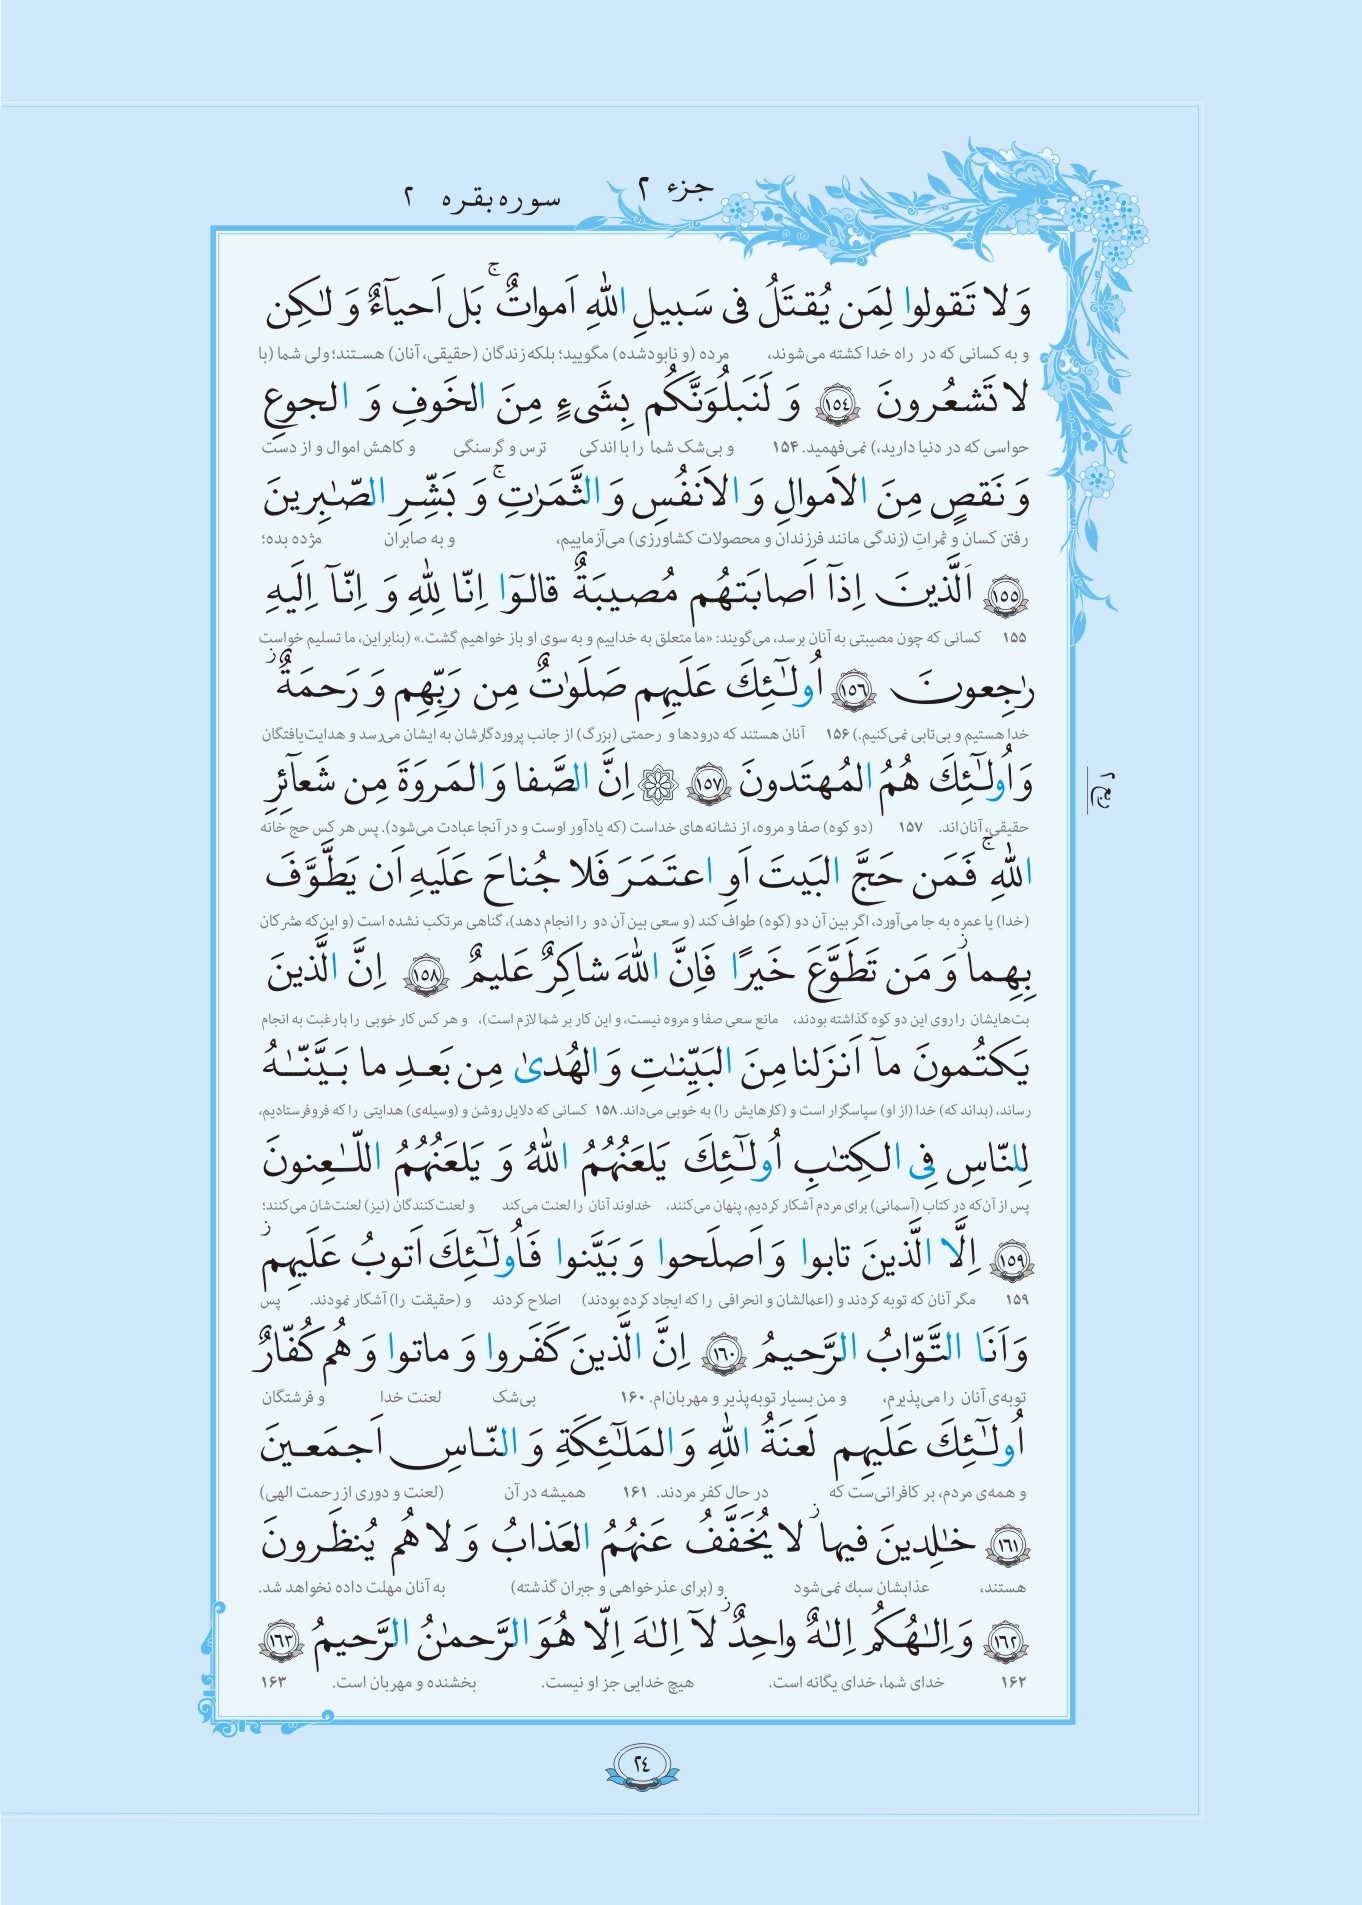 جزء ۲
سوره بقره ۲
وَ لا تَقولوا لِمَن يُقتَلُ فى سَبيلِ اللّٰهِ اَمواتٌ ۚ بَل اَحيآءٌ وَ لٰكِن
و به کسانی که در راه خدا کشته می‌شوند، مرده (و نابودشده) مگویید؛ بلکه زندگان (حقیقی، آنان) هستند؛ ولی شما (با
لا تَشعُرونَ ﴿١٥٤﴾ وَ لَنَبلُوَنَّكُم بِشَىءٍ مِنَ الخَوفِ وَ الجوعِ
حواسی که در دنیا دارید،) نمی‌فهمید. ۱۵۴ و بی‌شک شما را با اندکی ترس و گرسنگی و کاهش اموال و از دست
وَ نَقصٍ مِنَ الاَموالِ وَ الاَنفُسِ وَ الثَّمَرٰتِ ۚ وَ بَشِّرِ الصّٰبِرينَ
رفتن کسان و ثمراتِ (زندگی مانند فرزندان و محصولات کشاورزی) می‌آزماییم، و به صابران مژده بده؛
﴿١٥٥﴾ اَلَّذينَ اِذآ اَصابَتهُم مُصيبَةٌ قالوٓا اِنّا لِلّٰهِ وَ اِنّآ اِلَيهِ
۱۵۵ کسانی که چون مصیبتی به آنان برسد، می‌گویند: «ما متعلق به خداییم و به سوی او باز خواهیم گشت.» (بنابراین، ما تسلیم خواست
رٰجِعونَ ﴿١٥٦﴾ اُولٰٓئِكَ عَلَيهِم صَلَوٰتٌ مِن رَبِّهِم وَ رَحمَةٌ ز
خدا هستیم و بی‌تابی نمی‌کنیم.) ۱۵۶ آنان هستند که درودها و رحمتی (بزرگ) از جانب پروردگارشان به ایشان می‌رسد و هدایت‌یافتگان
وَ اُولٰٓئِكَ هُمُ المُهتَدونَ ﴿١٥٧﴾ ۞ اِنَّ الصَّفا وَ المَروَةَ مِن شَعآئِرِ
حقیقی، آنان‌اند. ۱۵۷ (دو کوه) صفا و مروه، از نشانه‌های خداست (که یادآور اوست و در آنجا عبادت می‌شود). پس هر کس حج خانه
ربع ۲
اللّٰهِ ۚ فَمَن حَجَّ البَيتَ اَوِ اعتَمَرَ فَلا جُناحَ عَلَيهِ اَن يَطَّوَّفَ
(خدا) یا عمره به جا می‌آورد، اگر بین آن دو (کوه) طواف کند (و سعی بین آن دو را انجام دهد)، گناهی مرتکب نشده است (و این‌که مشرکان
بِهِما ز وَ مَن تَطَوَّعَ خَيرًا فَاِنَّ اللّٰهَ شاكِرٌ عَليمٌ ﴿١٥٨﴾ اِنَّ الَّذينَ
بت‌هایشان را روی این دو کوه گذاشته بودند، مانع سعی صفا و مروه نیست، و این کار بر شما لازم است)، و هر کس کار خوبی را با رغبت به انجام
يَكتُمونَ مآ اَنزَلنا مِنَ البَيِّنٰتِ وَ الهُدىٰ مِن بَعدِ ما بَيَّنّٰهُ
رساند، (بداند که) خدا (از او) سپاسگزار است و (کارهایش را) به خوبی می‌داند. ۱۵۸ کسانی که دلایل روشن و (وسیله‌ی) هدایتی را که فروفرستادیم،
لِلنّاسِ فِى الكِتٰبِ اُولٰٓئِكَ يَلعَنُهُمُ اللّٰهُ وَ يَلعَنُهُمُ اللّٰعِنونَ
پس از آن‌که در کتاب (آسمانی) برای مردم آشکار کردیم، پنهان می‌کنند، خداوند آنان را لعنت می‌کند و لعنت‌کنندگان (نیز) لعنت‌شان می‌کنند؛
﴿١٥٩﴾ اِلَّا الَّذينَ تابوا وَ اَصلَحوا وَ بَيَّنوا فَاُولٰٓئِكَ اَتوبُ عَلَيهِم ز
۱۵۹ مگر آنان که توبه کردند و (اعمالشان و انحرافی را که ایجاد کرده بودند) اصلاح کردند و (حقیقت را) آشکار نمودند. پس
وَ اَنَا التَّوّابُ الرَّحيمُ ﴿١٦٠﴾ اِنَّ الَّذينَ كَفَروا وَ ماتوا وَ هُم كُفّارٌ
توبه‌ی آنان را می‌پذیرم، و من بسیار توبه‌پذیر و مهربان‌ام. ۱۶۰ بی‌شک لعنت خدا و فرشتگان
اُولٰٓئِكَ عَلَيهِم لَعنَةُ اللّٰهِ وَ المَلٰٓئِكَةِ وَ النّاسِ اَجمَعينَ
و همه‌ی مردم، بر کافرانی‌ست که در حال کفر مردند. ۱۶۱ همیشه در آن (لعنت و دوری از رحمت الهی)
﴿١٦١﴾ خٰلِدينَ فيها ز لا يُخَفَّفُ عَنهُمُ العَذابُ وَ لا هُم يُنظَرونَ
هستند، عذابشان سبک نمی‌شود و (برای عذرخواهی و جبران گذشته) به آنان مهلت داده نخواهد شد.
﴿١٦٢﴾ وَ اِلٰهُكُم اِلٰهٌ واحِدٌ ز لآ اِلٰهَ اِلّا هُوَ الرَّحمٰنُ الرَّحيمُ ﴿١٦٣﴾
۱۶۲ خدای شما، خدای یگانه است. هیچ خدایی جز او نیست. بخشنده و مهربان است. ۱۶۳
٢٤